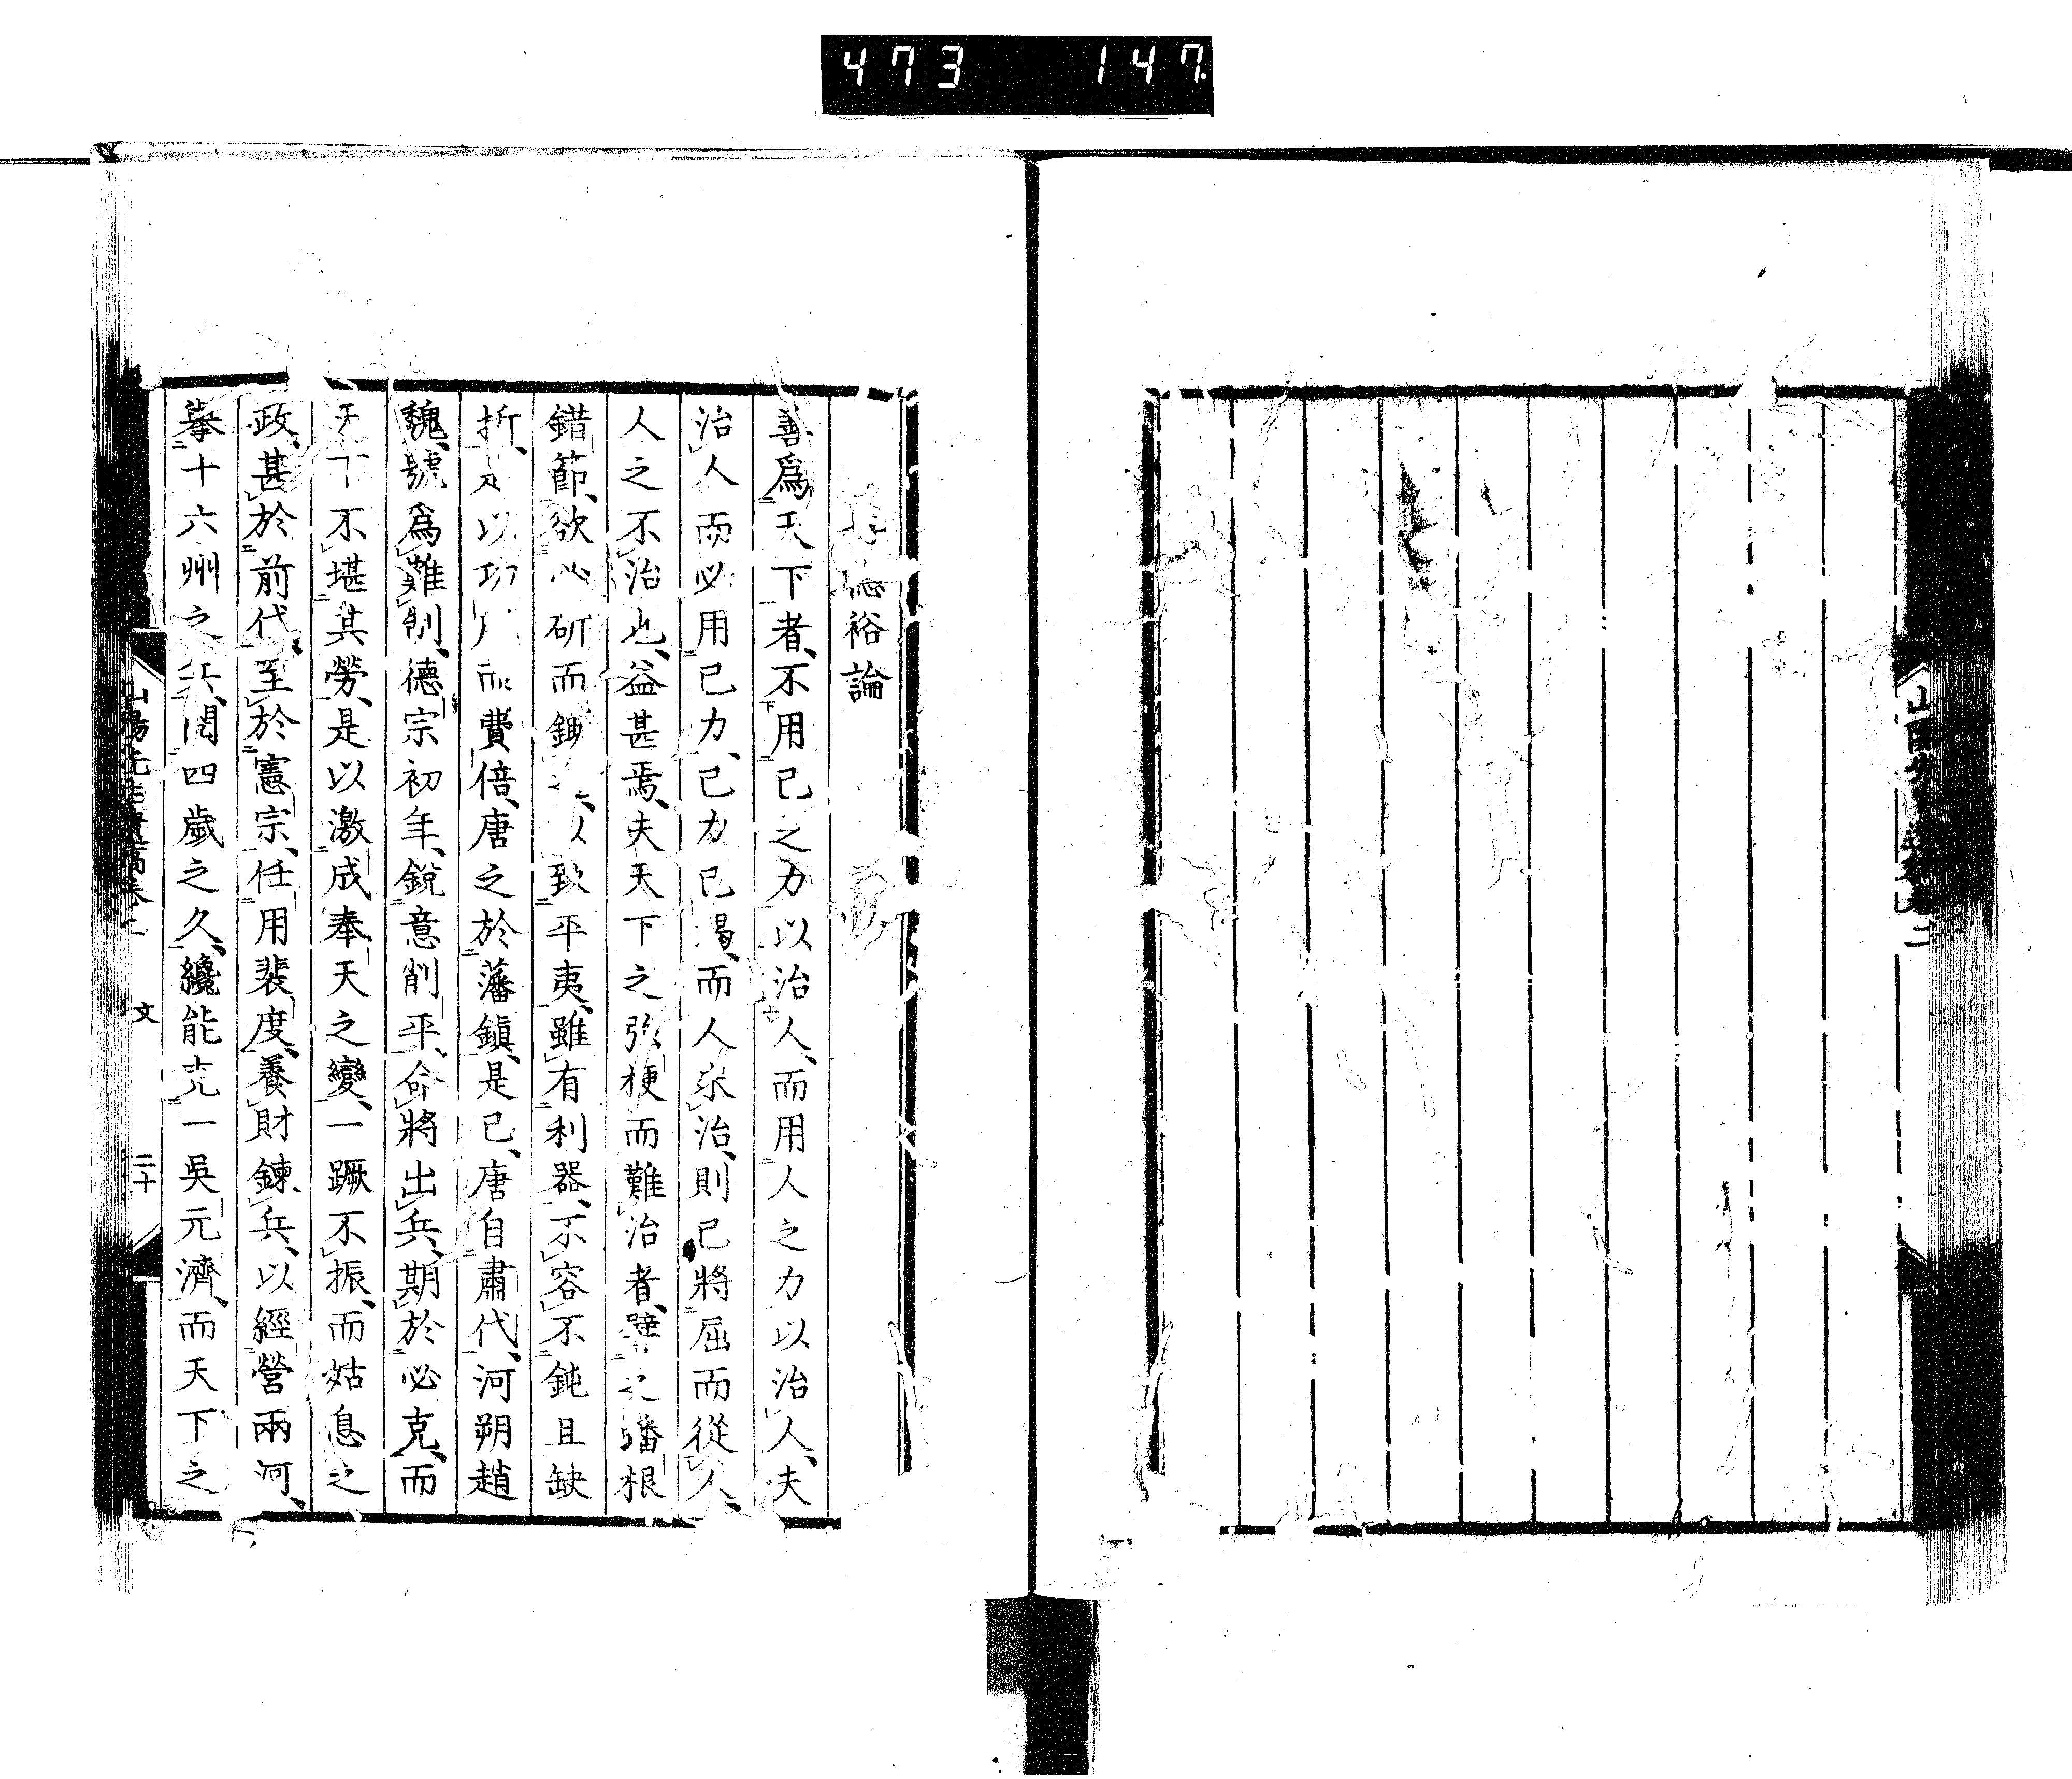 473 147
裕論
善爲天下者、不用己之力以治人、而用人之力以治人、夫
治人而必用己力、己力已竭、而人未治、則己將屈而從人、
人之不治也、益甚焉、夫天下之強梗而難治者、譬之蟠根
錯節、欲必斫而鋤、以致平夷、雖有利器、不容不鈍且缺
折、以功而費倍、唐之於藩鎭、是已、唐自肅代、河朔趙
魏、號爲難制、德宗初年、銳意削平、命將出兵、期於必克、而
天下不堪其勞、是以激成奉天之變、一蹶不振、而姑息之
政、甚於前代、至於憲宗、任用裴度、養財鍊兵、以經營兩河、
擧十六州之兵、閱四歲之久、纔能克一吳元濟、而天下之
山陽先生遺稿卷二 文 二十